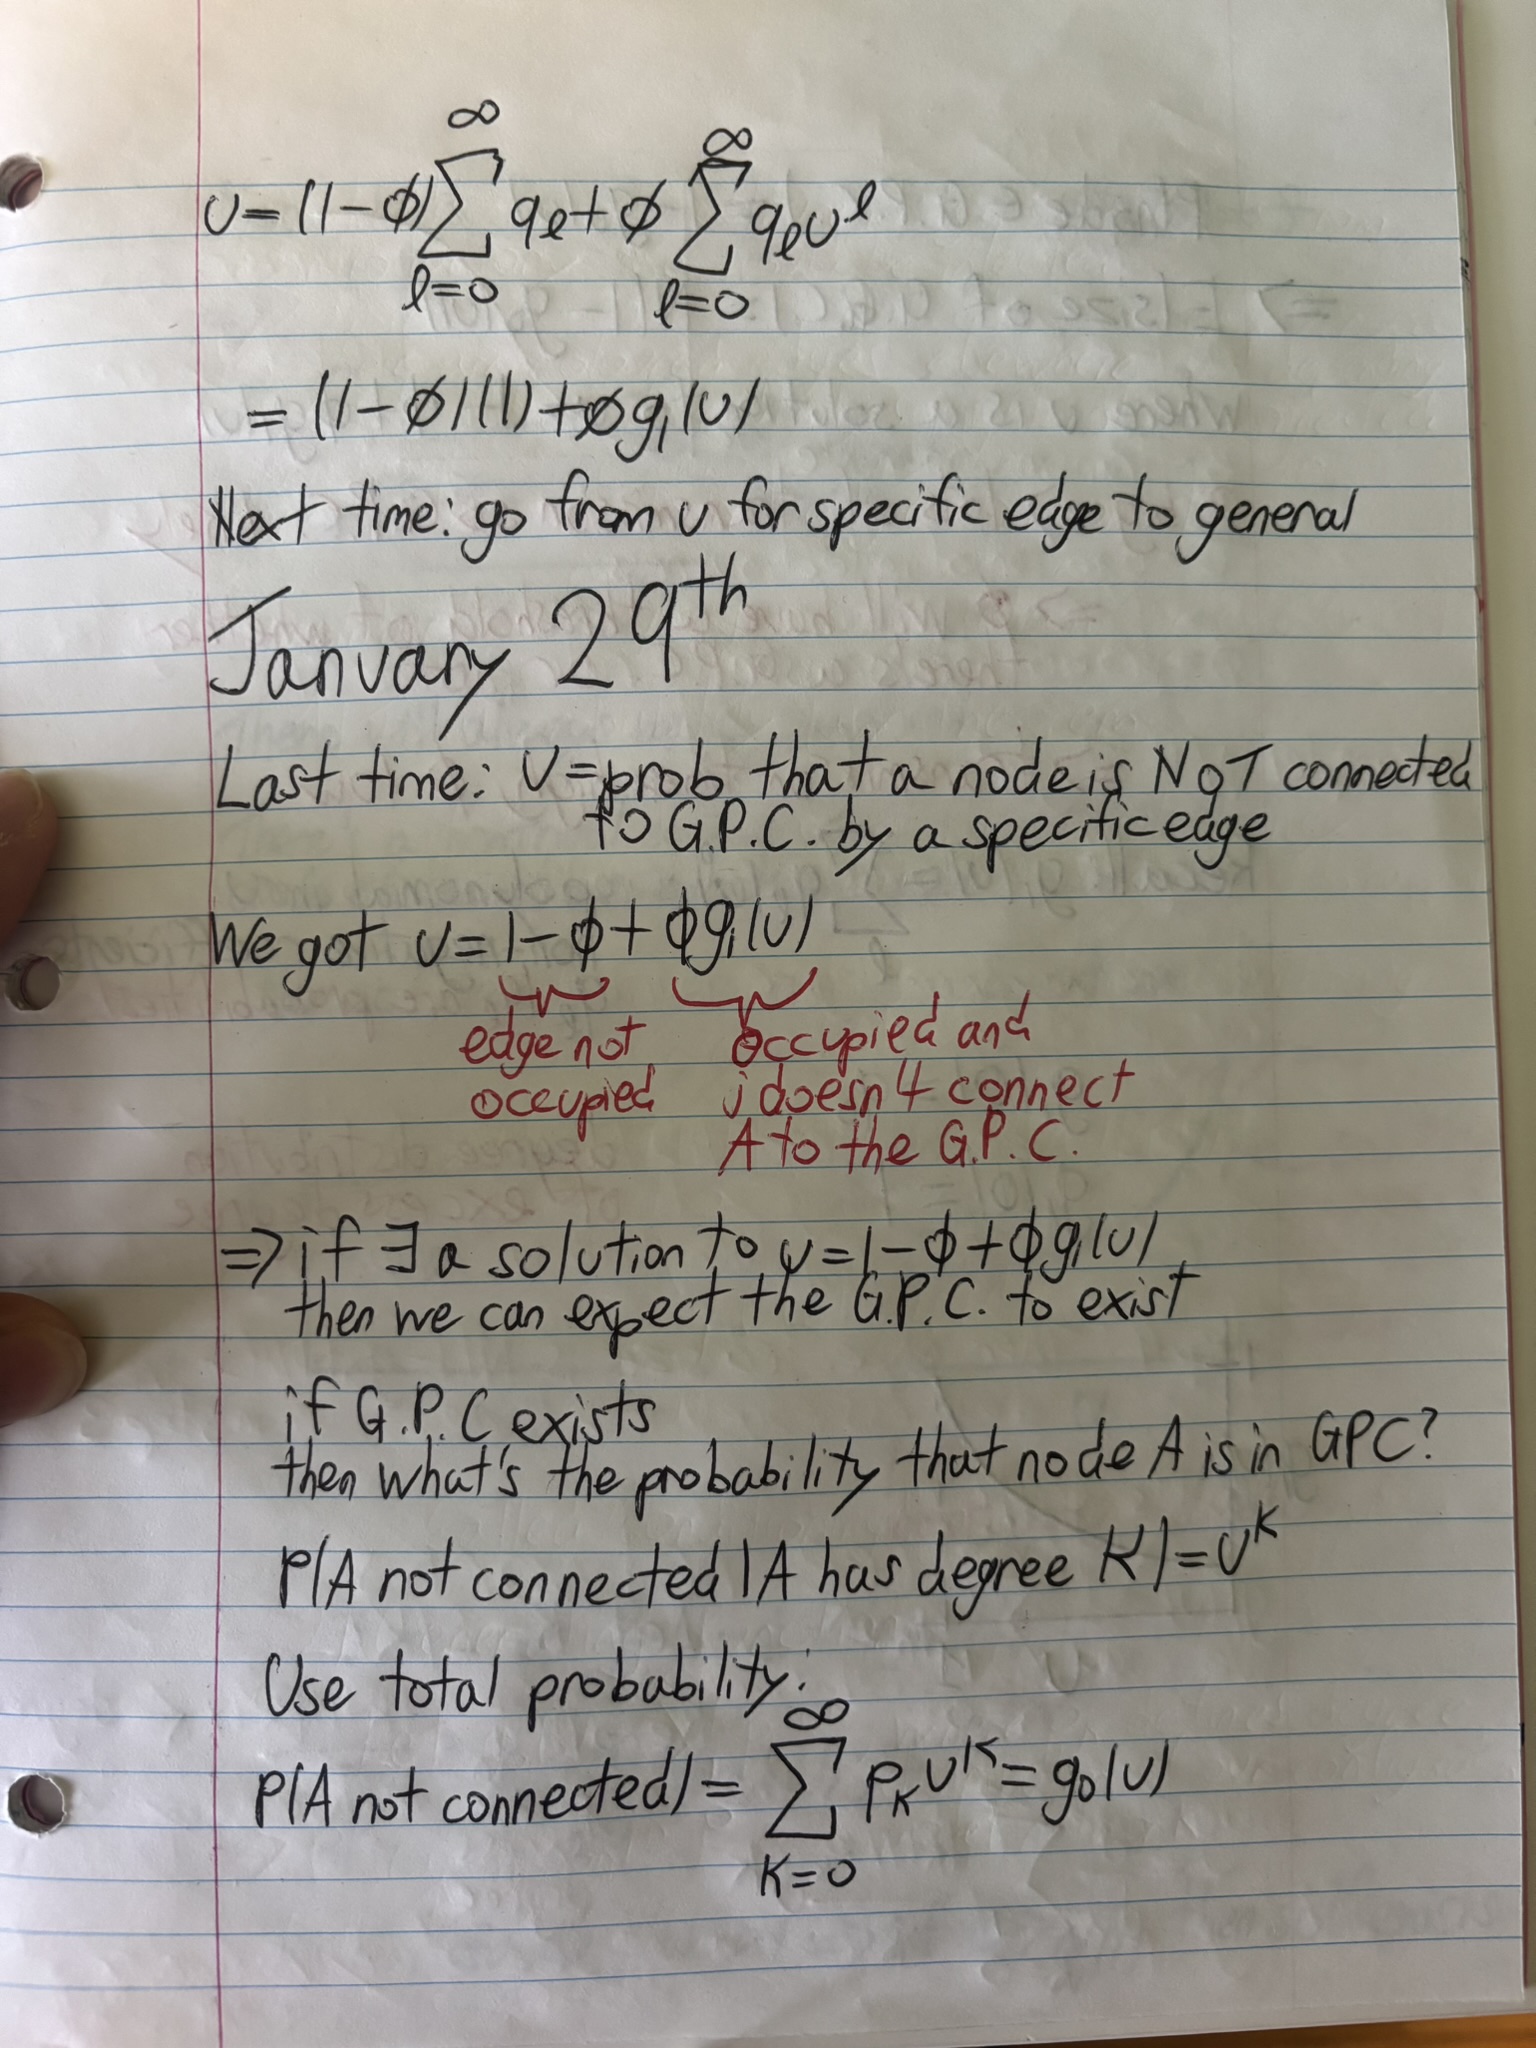 u = (1-ϕ) ∑_{l=0}^{∞} q_l + ϕ ∑_{l=0}^{∞} q_l u^l
= (1-ϕ)(1) + ϕ g_1(u)
Next time: go from u for specific edge to general
January 29th
Last time: u = prob that a node is NOT connected
to G.P.C. by a specific edge
We got u = 1-ϕ + ϕ g_1(u)
edge not occupied and
occupied j doesn't connect
A to the G.P.C.
⇒ if ∃ a solution to u = 1-ϕ + ϕ g_1(u)
then we can expect the G.P.C. to exist
if G.P.C exists
then what's the probability that node A is in GPC?
P(A not connected | A has degree K) = u^K
Use total probability:
P(A not connected) = ∑_{K=0}^{∞} p_K u^K = g_0(u)